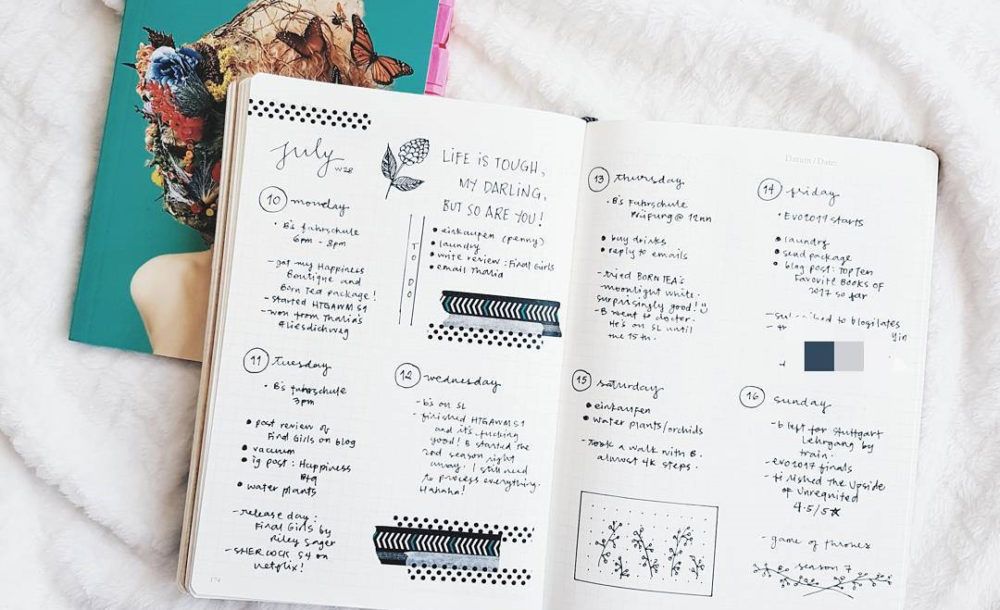 july
W28
LIFE IS TOUGH,
MY DARLING,
BUT SO ARE YOU!
10 monday
• B's fahrschule
6pm - 8pm
- got my Happiness
Boutique and
Born Tea package!
- started HTGAWM S1
- won from Thalia's
#liesdichweg
TO DO
• einkaufen (penny)
• laundry
• write review : Final Girls
• email Thalia
11 tuesday
• B's fahrschule
3pm
• post review of
Final Girls on blog
• vacuum
• ig post : Happiness
Btq
• water plants
- release day :
Final Girls by
Riley Sager
- SHERLOCK S4 on
netflix!
12 wednesday
- B's on SL
- finished HTGAWM S1
and it's fucking
good! B started the
2nd season right
away. I still need
to process everything.
Hahaha!
174
Datum / Date:
13 thursday
• B's Fahrschule
Prüfung @ 12nn
• buy drinks
• reply to emails
- tried BORN TEA's
moonlight white.
surprisingly good!
- B went to doctor.
He's on SL until
the 15th.
14 friday
• EVO2017 starts
• laundry
• send package
• blog post : TOP TEN
FAVORITE BOOKS OF
2017 so far
to blogilates
15 saturday
• einkaufen
• water plants/orchids
- took a walk with B.
almost 4k steps.
16 sunday
- B left for Stuttgart
Lehrgang by
train.
- EVO2017 finals
- finished The Upside
of Unrequited
4.5/5★
- game of thrones
season 7